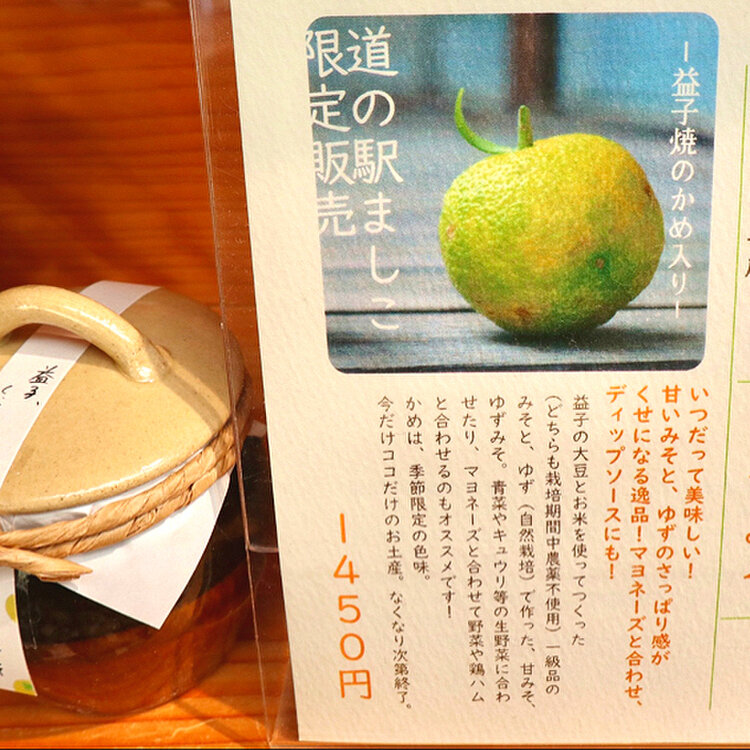 道の駅ましこ
限定販売
ー益子焼のかめ入りー
いつだって美味しい!
甘いみそと、ゆずのさっぱり感が
くせになる逸品!マヨネーズと合わせ、
ディップソースにも!
益子の大豆とお米を使ってつくった
(どちらも栽培期間中農薬不使用)一級品の
みそと、ゆず(自然栽培)で作った、甘みそ、
ゆずみそ。青菜やキュウリ等の生野菜に合わ
せたり、マヨネーズと合わせて野菜や鶏ハム
と合わせるのもオススメです!
かめは、季節限定の色味。
今だけココだけのお土産。なくなり次第終了。
1450円
益子、